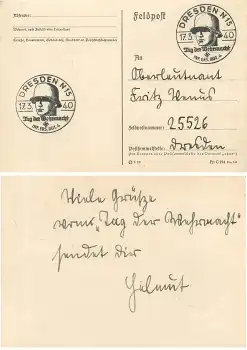 Absender:
DRESDEN N 15
17.3. 40
Tag der Wehrmacht
Feldpost
DRESDEN N 15
17.3. 40
Tag der Wehrmacht
An
Oberleutnant
Fritz Venus
Feldpostnummer: 25526
Postsammelstelle: Dresden
Viele Grüsze
vom "Tag der Wehrmacht"
sendet dir
Helmut